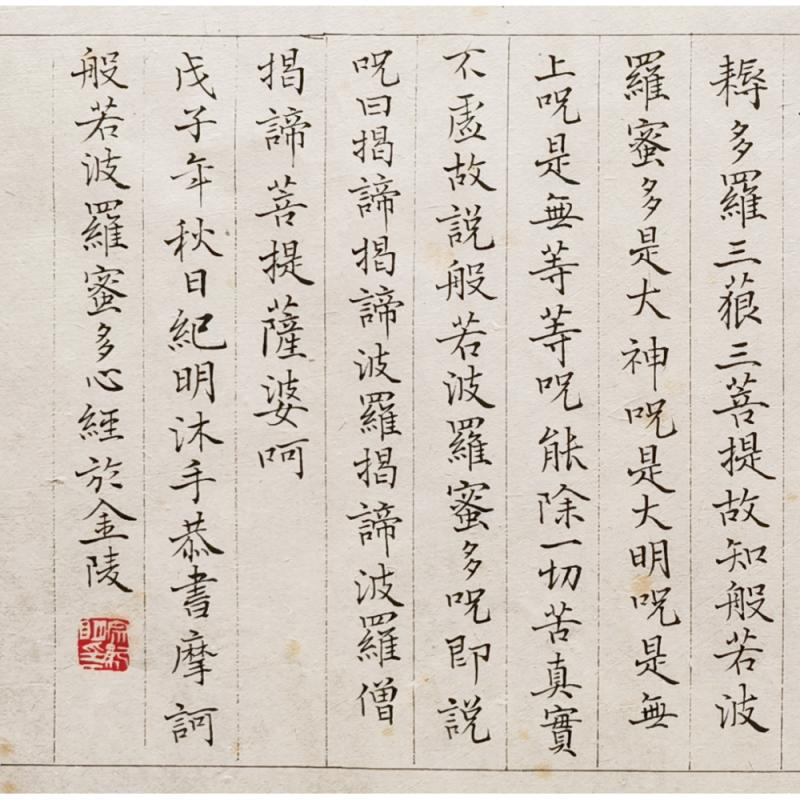 耨多羅三藐三菩提故知般若波
羅蜜多是大神呪是大明呪是無
上呪是無等等呪能除一切苦真實
不虛故說般若波羅蜜多呪即說
呪曰揭諦揭諦波羅揭諦波羅僧
揭諦菩提薩婆呵
戊子年秋日紀明沐手恭書摩訶
般若波羅蜜多心經於金陵